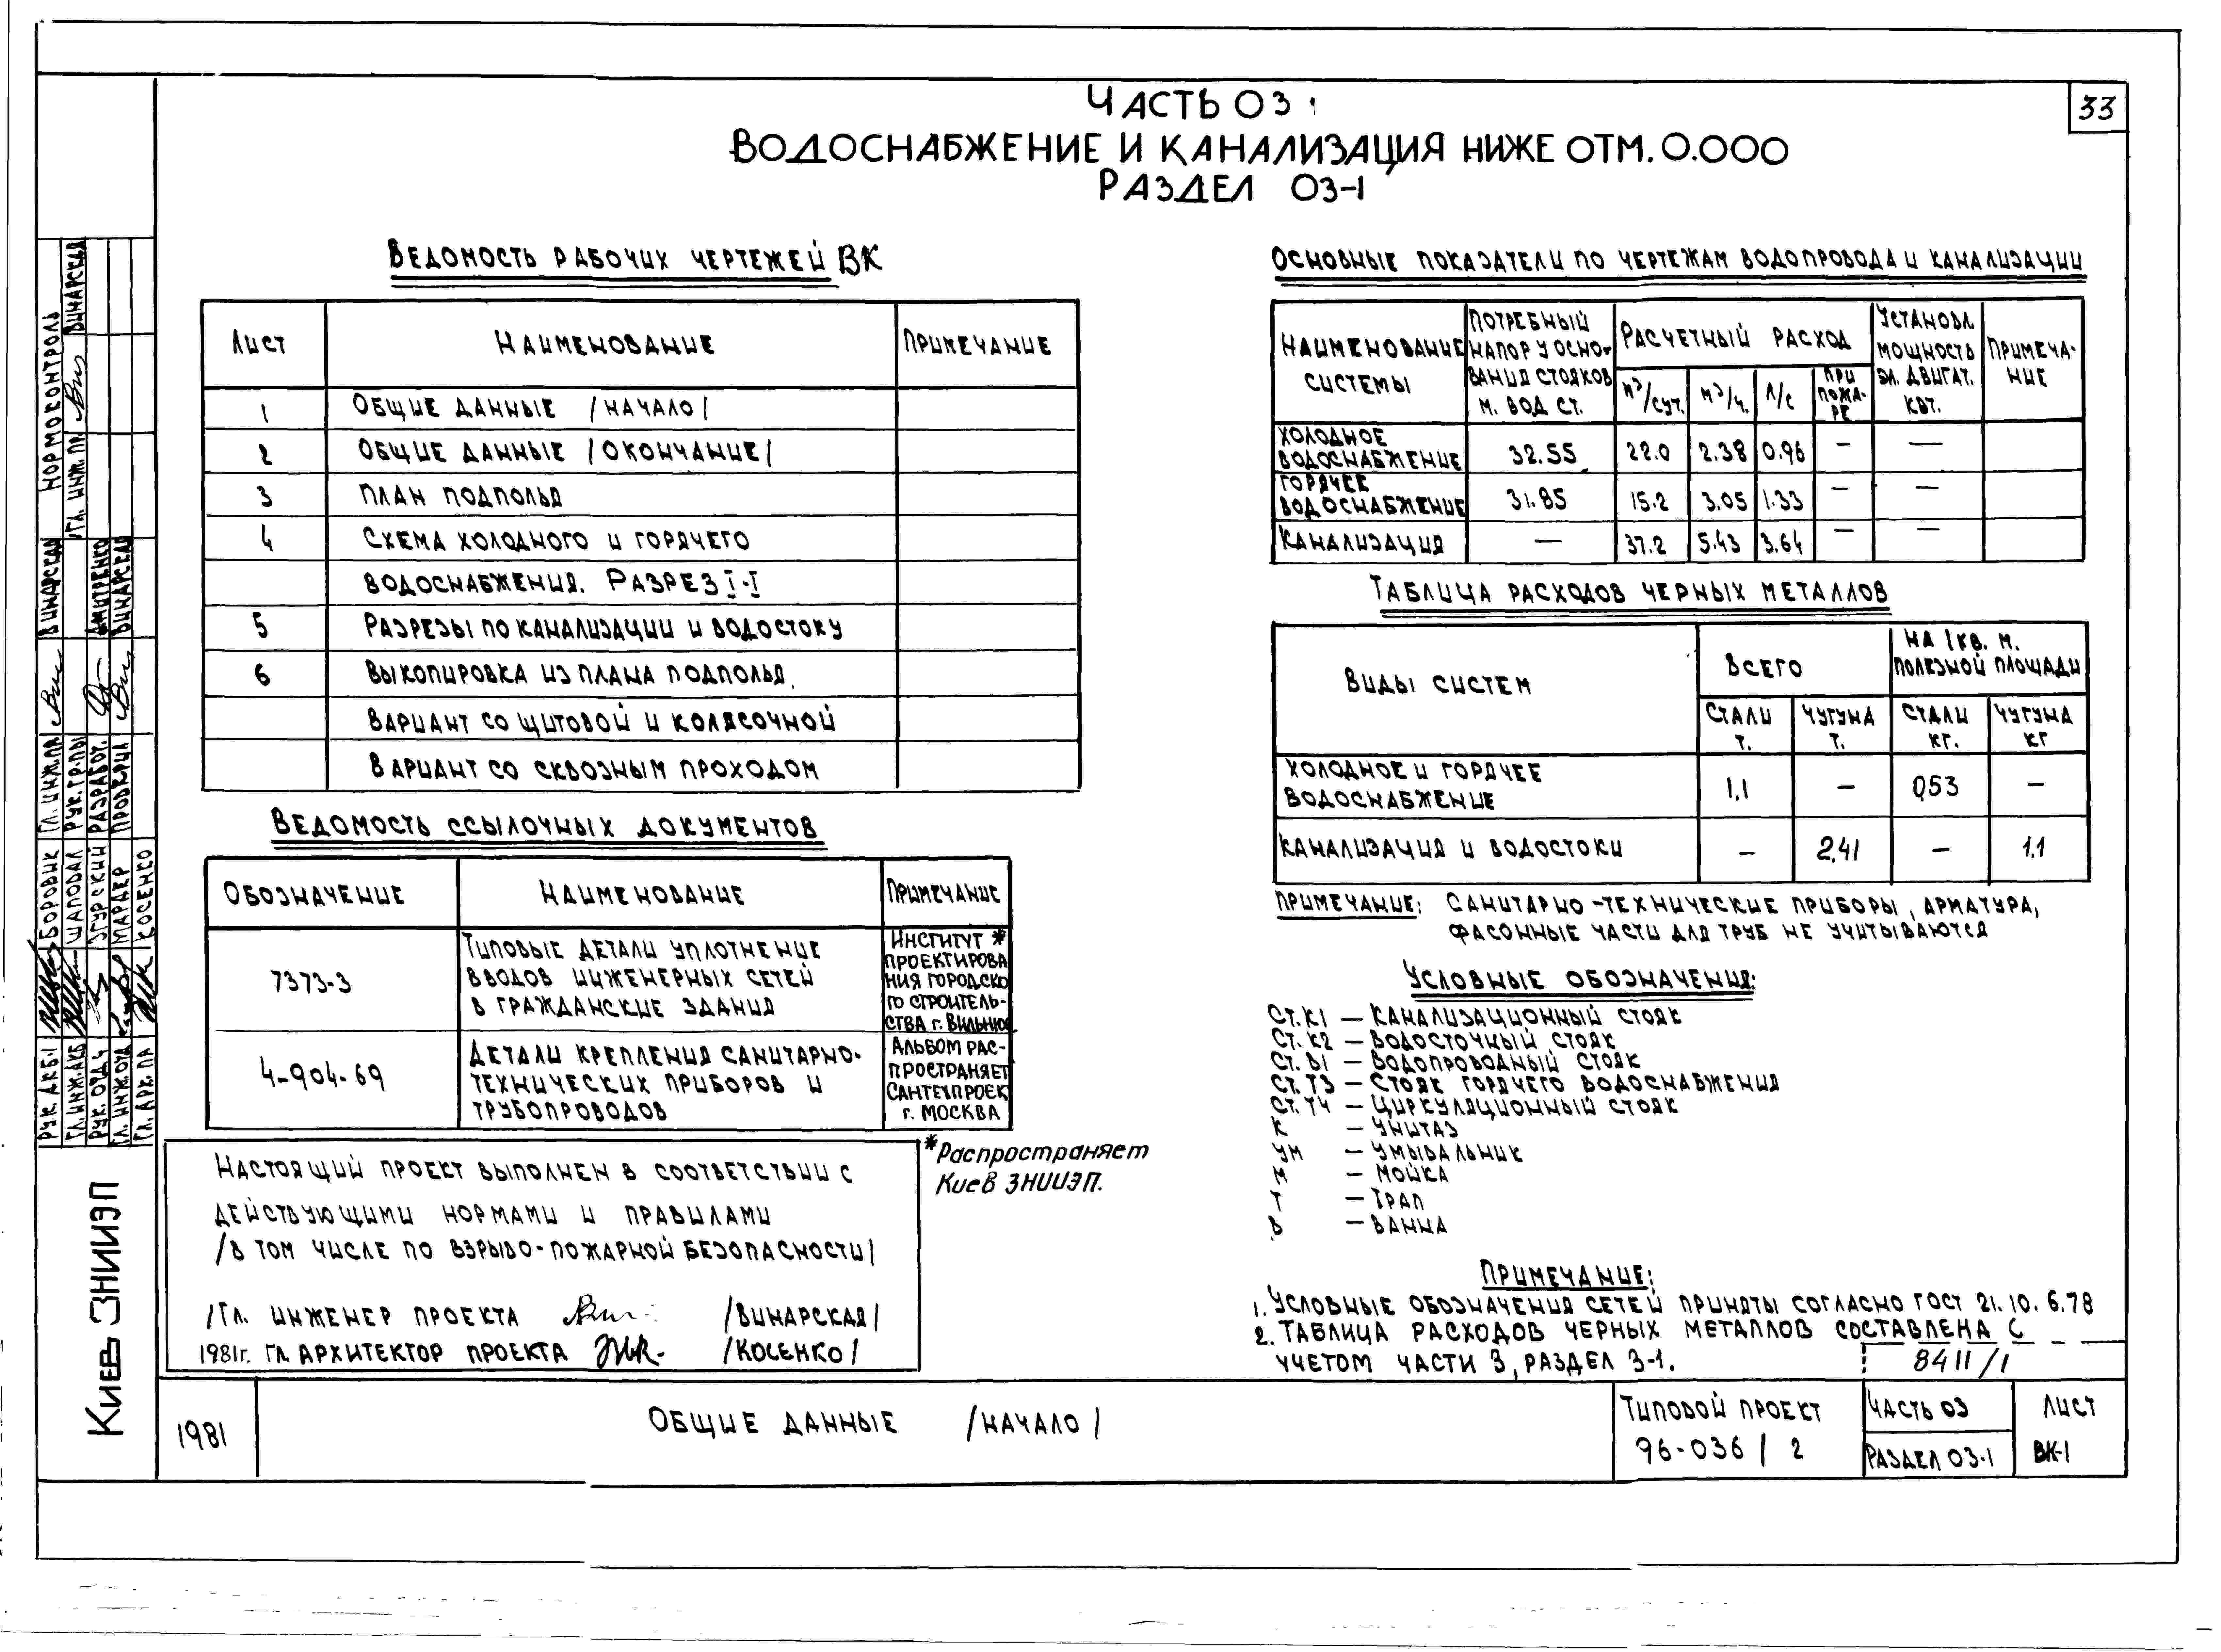 33
ЧАСТЬ 03
ВОДОСНАБЖЕНИЕ И КАНАЛИЗАЦИЯ НИЖЕ ОТМ. 0.000
РАЗДЕЛ 03-1
ВЕДОМОСТЬ РАБОЧИХ ЧЕРТЕЖЕЙ ВК
ЛИСТ НАИМЕНОВАНИЕ ПРИМЕЧАНИЕ
1 ОБЩИЕ ДАННЫЕ /НАЧАЛО/
2 ОБЩИЕ ДАННЫЕ /ОКОНЧАНИЕ/
3 ПЛАН ПОДПОЛЬЯ
4 СХЕМА ХОЛОДНОГО И ГОРЯЧЕГО
ВОДОСНАБЖЕНИЯ. РАЗРЕЗ I-I
5 РАЗРЕЗЫ ПО КАНАЛИЗАЦИИ И ВОДОСТОКУ
6 ВЫКОПИРОВКА ИЗ ПЛАНА ПОДПОЛЬЯ.
ВАРИАНТ СО ЩИТОВОЙ И КОЛЯСОЧНОЙ
ВАРИАНТ СО СКВОЗНЫМ ПРОХОДОМ
ВЕДОМОСТЬ ССЫЛОЧНЫХ ДОКУМЕНТОВ
ОБОЗНАЧЕНИЕ НАИМЕНОВАНИЕ ПРИМЕЧАНИЕ
7373-3
ТИПОВЫЕ ДЕТАЛИ УПЛОТНЕНИЕ
ВВОДОВ ИНЖЕНЕРНЫХ СЕТЕЙ
В ГРАЖДАНСКИЕ ЗДАНИЯ
ИНСТИТУТ *
ПРОЕКТИРОВА
НИЯ ГОРОДСКО
ГО СТРОИТЕЛЬ-
СТВА г. ВИЛЬНЮС
4-904-69
ДЕТАЛИ КРЕПЛЕНИЯ САНИТАРНО-
ТЕХНИЧЕСКИХ ПРИБОРОВ И
ТРУБОПРОВОДОВ
АЛЬБОМ РАС-
ПРОСТРАНЯЕТ
САНТЕХПРОЕК
г. МОСКВА
*Распространяет
Киев ЗНИИЭП.
НАСТОЯЩИЙ ПРОЕКТ ВЫПОЛНЕН В СООТВЕТСТВИИ С
ДЕЙСТВУЮЩИМИ НОРМАМИ И ПРАВИЛАМИ
/В ТОМ ЧИСЛЕ ПО ВЗРЫВО-ПОЖАРНОЙ БЕЗОПАСНОСТИ/
/ГЛ. ИНЖЕНЕР ПРОЕКТА /ВИНАРСКАЯ/
1981г. ГЛ. АРХИТЕКТОР ПРОЕКТА /КОСЕНКО/
ОСНОВНЫЕ ПОКАЗАТЕЛИ ПО ЧЕРТЕЖАМ ВОДОПРОВОДА И КАНАЛИЗАЦИИ
НАИМЕНОВАНИЕ
СИСТЕМЫ
ПОТРЕБНЫЙ
НАПОР У ОСНО-
ВАНИЯ СТОЯКОВ
М. ВОД СТ.
РАСЧЕТНЫЙ РАСХОД
М³/СУТ. М³/Ч. Л/С
ПРИ
ПОЖА-
РЕ
УСТАНОВЛ
МОЩНОСТЬ
ЭЛ. ДВИГАТ.
КВТ.
ПРИМЕЧА-
НИЕ
ХОЛОДНОЕ
ВОДОСНАБЖЕНИЕ 32.55 22.0 2.38 0.96 — —
ГОРЯЧЕЕ
ВОДОСНАБЖЕНИЕ 31.85 15.2 3.05 1.33 — —
КАНАЛИЗАЦИЯ — 37.2 5.43 3.64 — —
ТАБЛИЦА РАСХОДОВ ЧЕРНЫХ МЕТАЛЛОВ
ВИДЫ СИСТЕМ
ВСЕГО
НА 1 КВ. М.
ПОЛЕЗНОЙ ПЛОЩАДИ
СТАЛИ Т. ЧУГУНА Т. СТАЛИ КГ. ЧУГУНА КГ
ХОЛОДНОЕ И ГОРЯЧЕЕ
ВОДОСНАБЖЕНИЕ 1.1 — 0,53 —
КАНАЛИЗАЦИЯ И ВОДОСТОКИ — 2.41 — 1.1
ПРИМЕЧАНИЕ: САНИТАРНО-ТЕХНИЧЕСКИЕ ПРИБОРЫ, АРМАТУРА,
ФАСОННЫЕ ЧАСТИ ДЛЯ ТРУБ НЕ УЧИТЫВАЮТСЯ
УСЛОВНЫЕ ОБОЗНАЧЕНИЯ:
СТ. К1 — КАНАЛИЗАЦИОННЫЙ СТОЯК
СТ. К2 — ВОДОСТОЧНЫЙ СТОЯК
СТ. В1 — ВОДОПРОВОДНЫЙ СТОЯК
СТ. Т3 — СТОЯК ГОРЯЧЕГО ВОДОСНАБЖЕНИЯ
СТ. Т4 — ЦИРКУЛЯЦИОННЫЙ СТОЯК
К — УНИТАЗ
УМ — УМЫВАЛЬНИК
М — МОЙКА
Т — ТРАП
В — ВАННА
ПРИМЕЧАНИЕ:
1. УСЛОВНЫЕ ОБОЗНАЧЕНИЯ СЕТЕЙ ПРИНЯТЫ СОГЛАСНО ГОСТ 21.10.6.78
2. ТАБЛИЦА РАСХОДОВ ЧЕРНЫХ МЕТАЛЛОВ СОСТАВЛЕНА С
УЧЕТОМ ЧАСТИ 3, РАЗДЕЛ 3-1.
8411/1
1981
ОБЩИЕ ДАННЫЕ /НАЧАЛО/
ТИПОВОЙ ПРОЕКТ
96-036/2
ЧАСТЬ 03
РАЗДЕЛ 03-1
ЛИСТ
ВК-1
КИЕВ ЗНИИЭП
РУК. АКБ-1 БОРОВИК ГЛ. ИНЖ. ПР. ВИНАРСКАЯ НОРМОКОНТРОЛЬ
ГЛ. ИНЖ. АКБ ШАПОВАЛ РУК. ГР-ПЫ ГЛ. ИНЖ. ПР. ВИНАРСКАЯ
РУК. ОТД. 4 ЗГУРСКИЙ РАЗРАБОТ. ДМИТРЕНКО
ГЛ. ИНЖ. ОТД МАРДЕР ПРОВЕРИЛ ВИНАРСКАЯ
ГЛ. АРХ. ПА КОСЕНКО